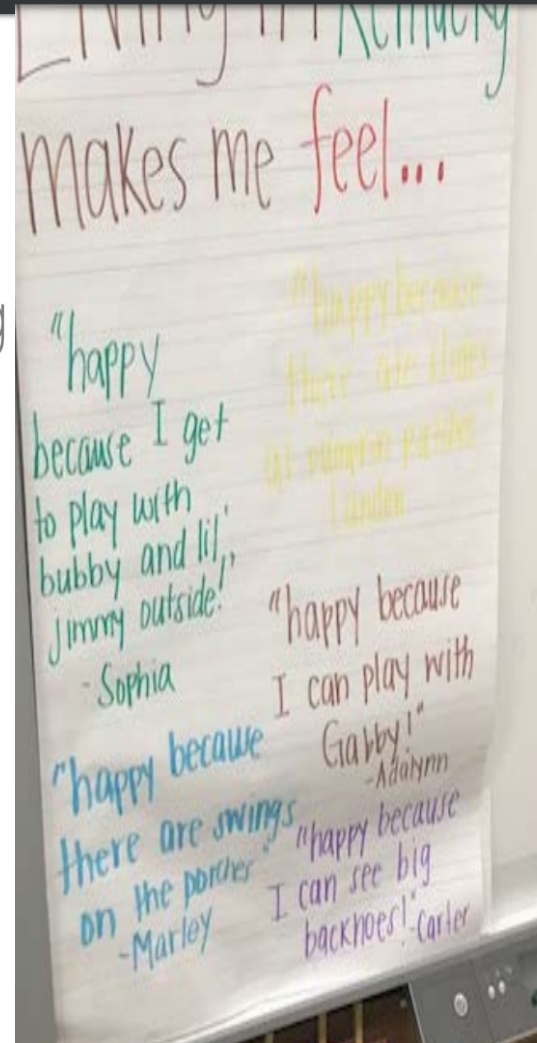 Living in Kentucky
makes me feel...
"happy
because I get
to play with
bubby and lil'
jimmy outside!"
- Sophia
"happy because
there are slides
at pumpkin patches"
Landon
"happy because
I can play with
Gabby!"
-Adalynn
"happy because
there are swings
on the porches"
-Marley
"happy because
I can see big
backhoes!" -Carter